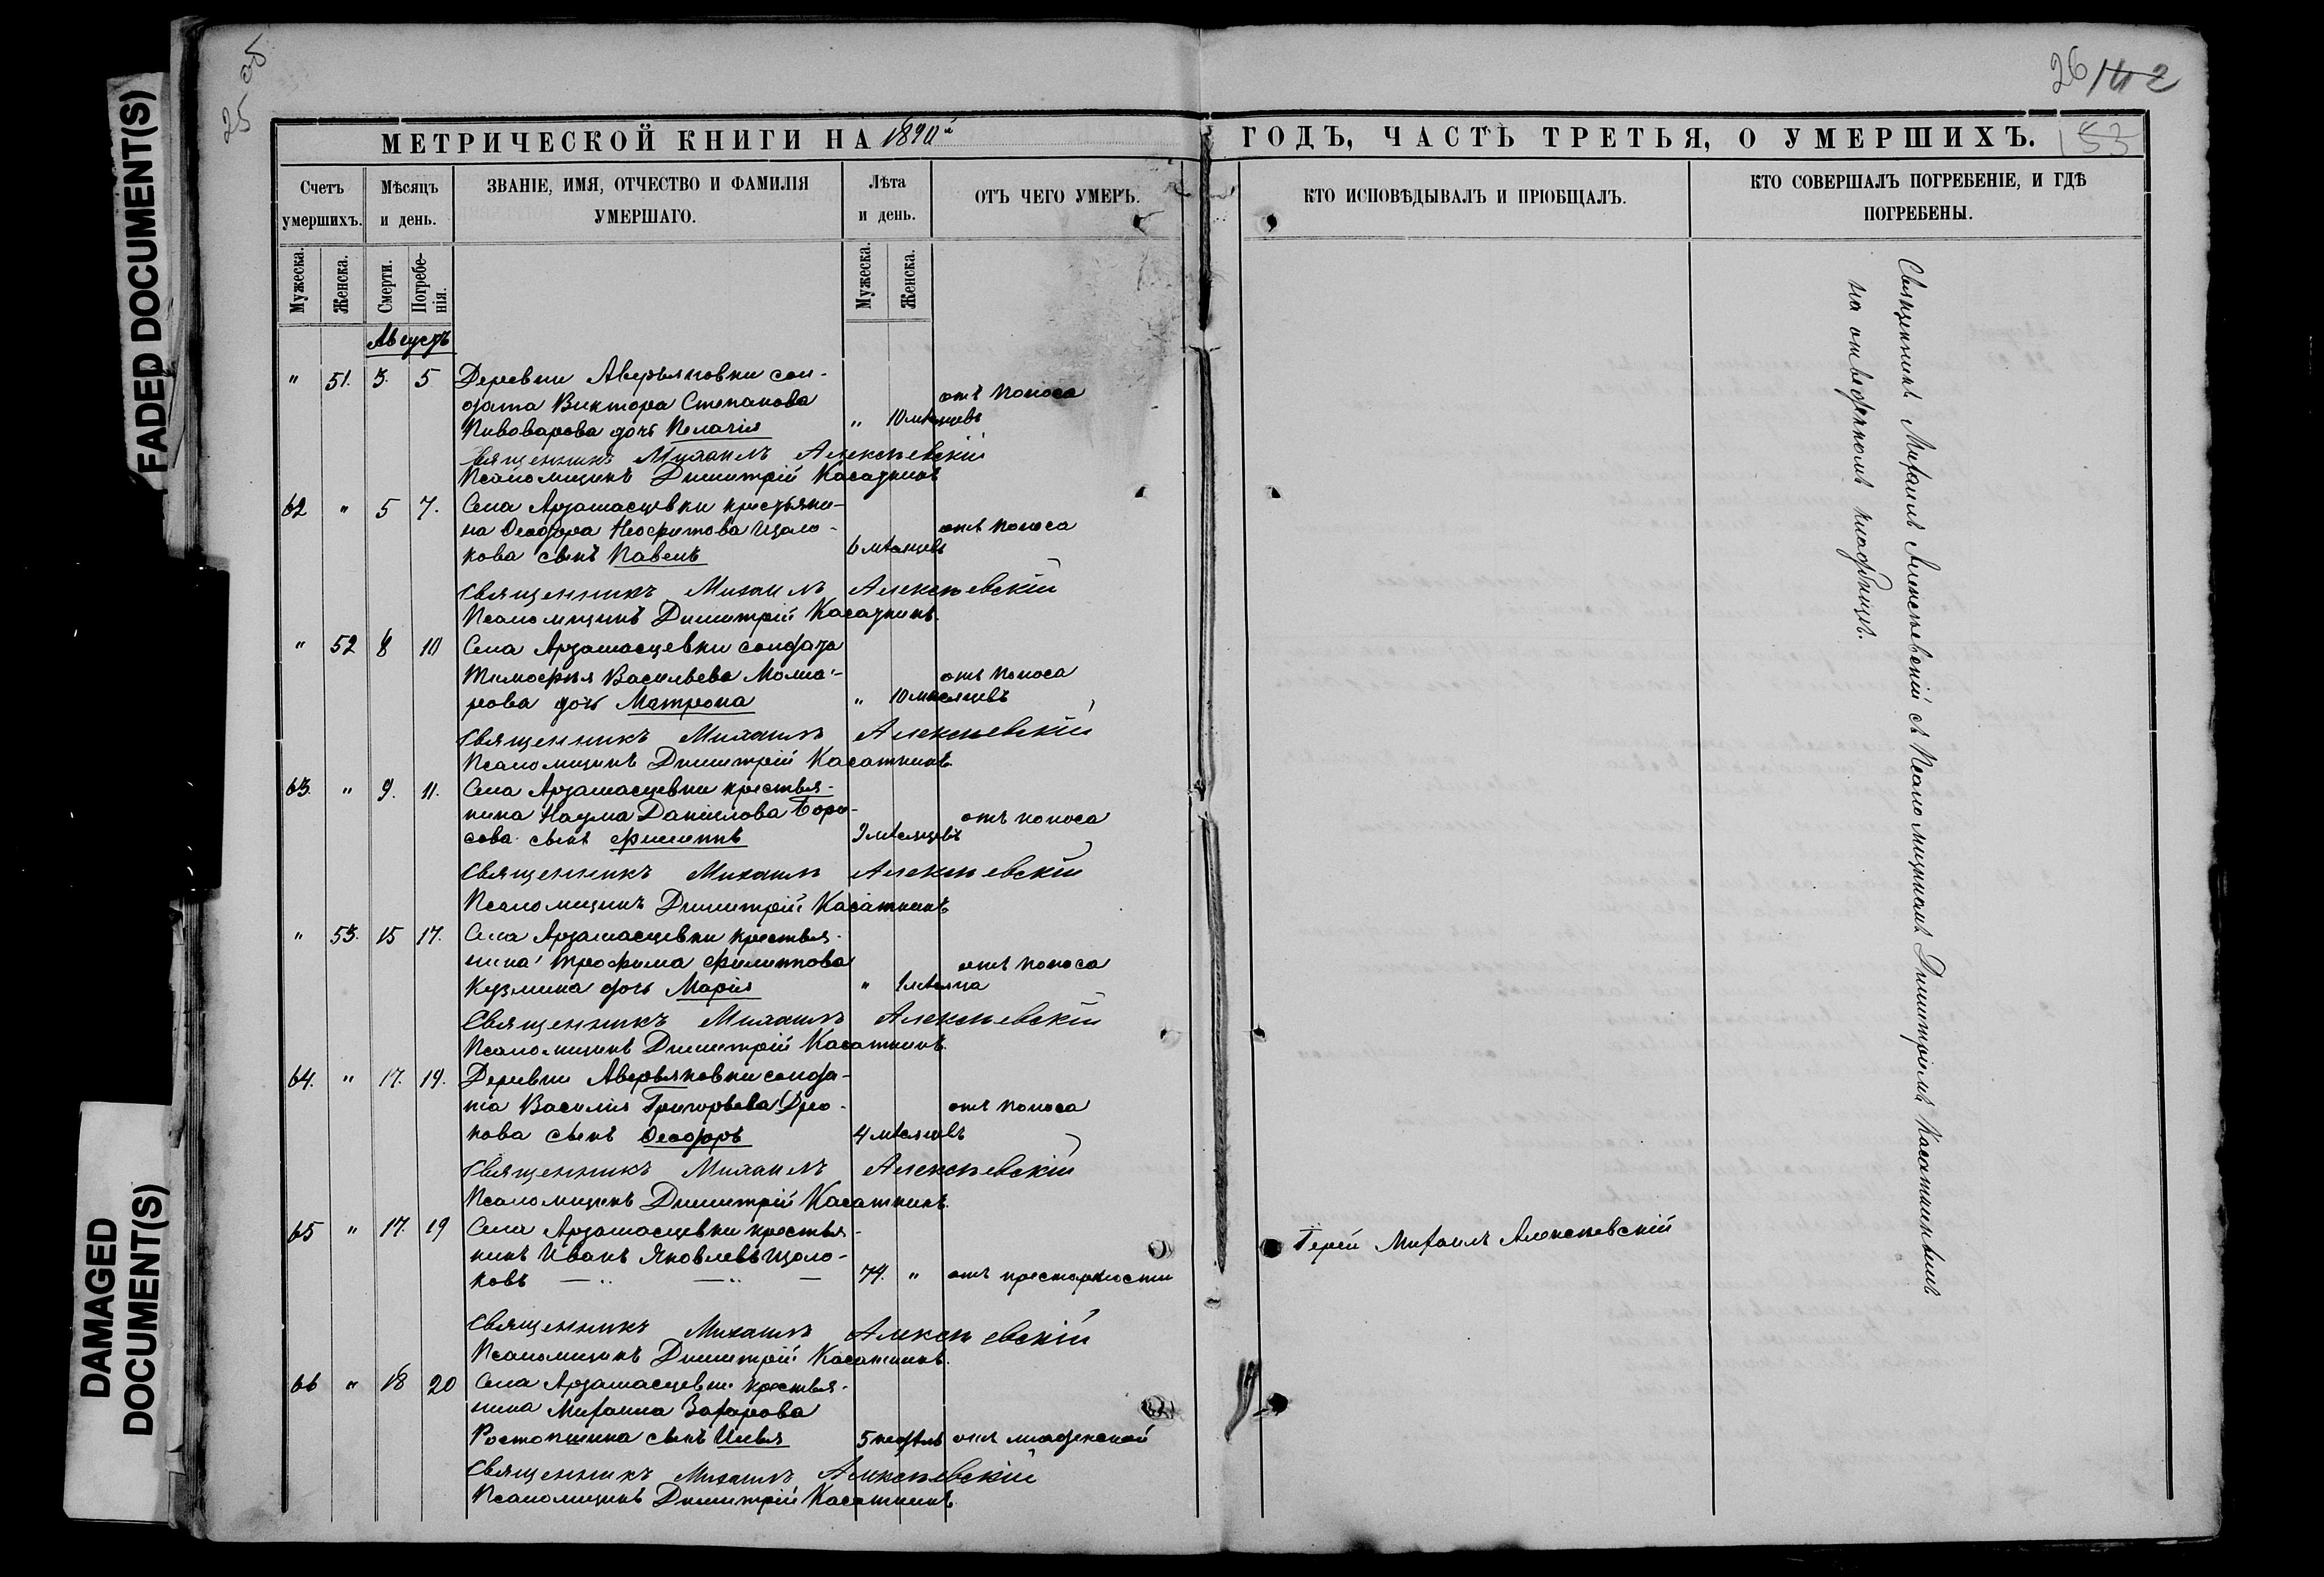 FADED DOCUMENT(S)
DAMAGED
DOCUMENT(S)
25
26
МЕТРИЧЕСКОЙ КНИГИ НА
ГОДЪ, ЧАСТЬ ТРЕТЬЯ, О УМЕРШИХЪ.
153
Счетъ
умершихъ.
Мѣсяцъ
и день.
ЗВАНІЕ, ИМЯ, ОТЧЕСТВО И ФАМИЛІЯ
УМЕРШАГО.
Лѣта
и день.
ОТЪ ЧЕГО УМЕРЪ.
КТО ИСПОВѢДЫВАЛЪ И ПРІОБЩАЛЪ.
КТО СОВЕРШАЛЪ ПОГРЕБЕНІЕ, И ГДѢ
ПОГРЕБЕНЫ.
Мужеска.
Женска.
Смерти.
Погребе-
нія.
Мужеска.
Женска.
Августъ
" 51. 3. 5 Деревни Аверьяновки сол-
дата Виктора Степанова отъ поноса
Пивоварова дочь Пелагія " 10 мѣсяцевъ
Священникъ Михаилъ Алексѣевскій
Псаломщикъ Димитрій Касаткинъ
62 " 5 7. Села Арзамасцевки крестьяни-
на Ѳеодора Неофитова Щоло- отъ поноса
кова сынъ Павелъ 6 мѣсяцевъ
Священникъ Михаилъ Алексѣевскій
Псаломщикъ Димитрій Касаткинъ.
" 52 8 10 Села Арзамасцевки солдата
Тимофѣя Васильева отъ поноса
дочь Матрона " 10 мѣсяцевъ
Священникъ Михаилъ Алексѣевскій
Псаломщикъ Димитрій Касаткинъ.
63. " 9. 11. Села Арзамасцевки крестья-
нина Наума Даніилова Бори- отъ поноса
сова сынъ Филиппъ 9 мѣсяцевъ
Священникъ Михаилъ Алексѣевскій
Псаломщикъ Димитрій Касаткинъ
" 53. 15 17. Села Арзамасцевки крестья-
нина Трофима Филиппова отъ поноса
Кузмина дочь Марія " 1 мѣсяца
Священникъ Михаилъ Алексѣевскій
Псаломщикъ Димитрій Касаткинъ.
64. " 17. 19. Деревни Аверьяновки солда-
та Василія Григорьева Дро- отъ поноса
нова сынъ Ѳеодоръ 4 мѣсяцевъ
Священникъ Михаилъ Алексѣевскій
Псаломщикъ Димитрій Касаткинъ.
65 " 17. 19 Села Арзамасцевки крестья-
нинъ Иванъ Яковлевъ Щоло-
ковъ 74. " отъ престарѣлости
Іерей Михаилъ Алексѣевскій
Священникъ Михаилъ Алексѣевскій
Псаломщикъ Димитрій Касаткинъ.
66 " 18 20 Села Арзамасцевки крестья-
нина Михаила Захарова
Ростопшина сынъ Илья 5 недѣль отъ младенской
Священникъ Михаилъ Алексѣевскій
Псаломщикъ Димитрій Касаткинъ
Священникъ Михаилъ Алексѣевскій съ Псаломщикомъ Димитріемъ Касаткинымъ
на отведенномъ кладбищѣ.